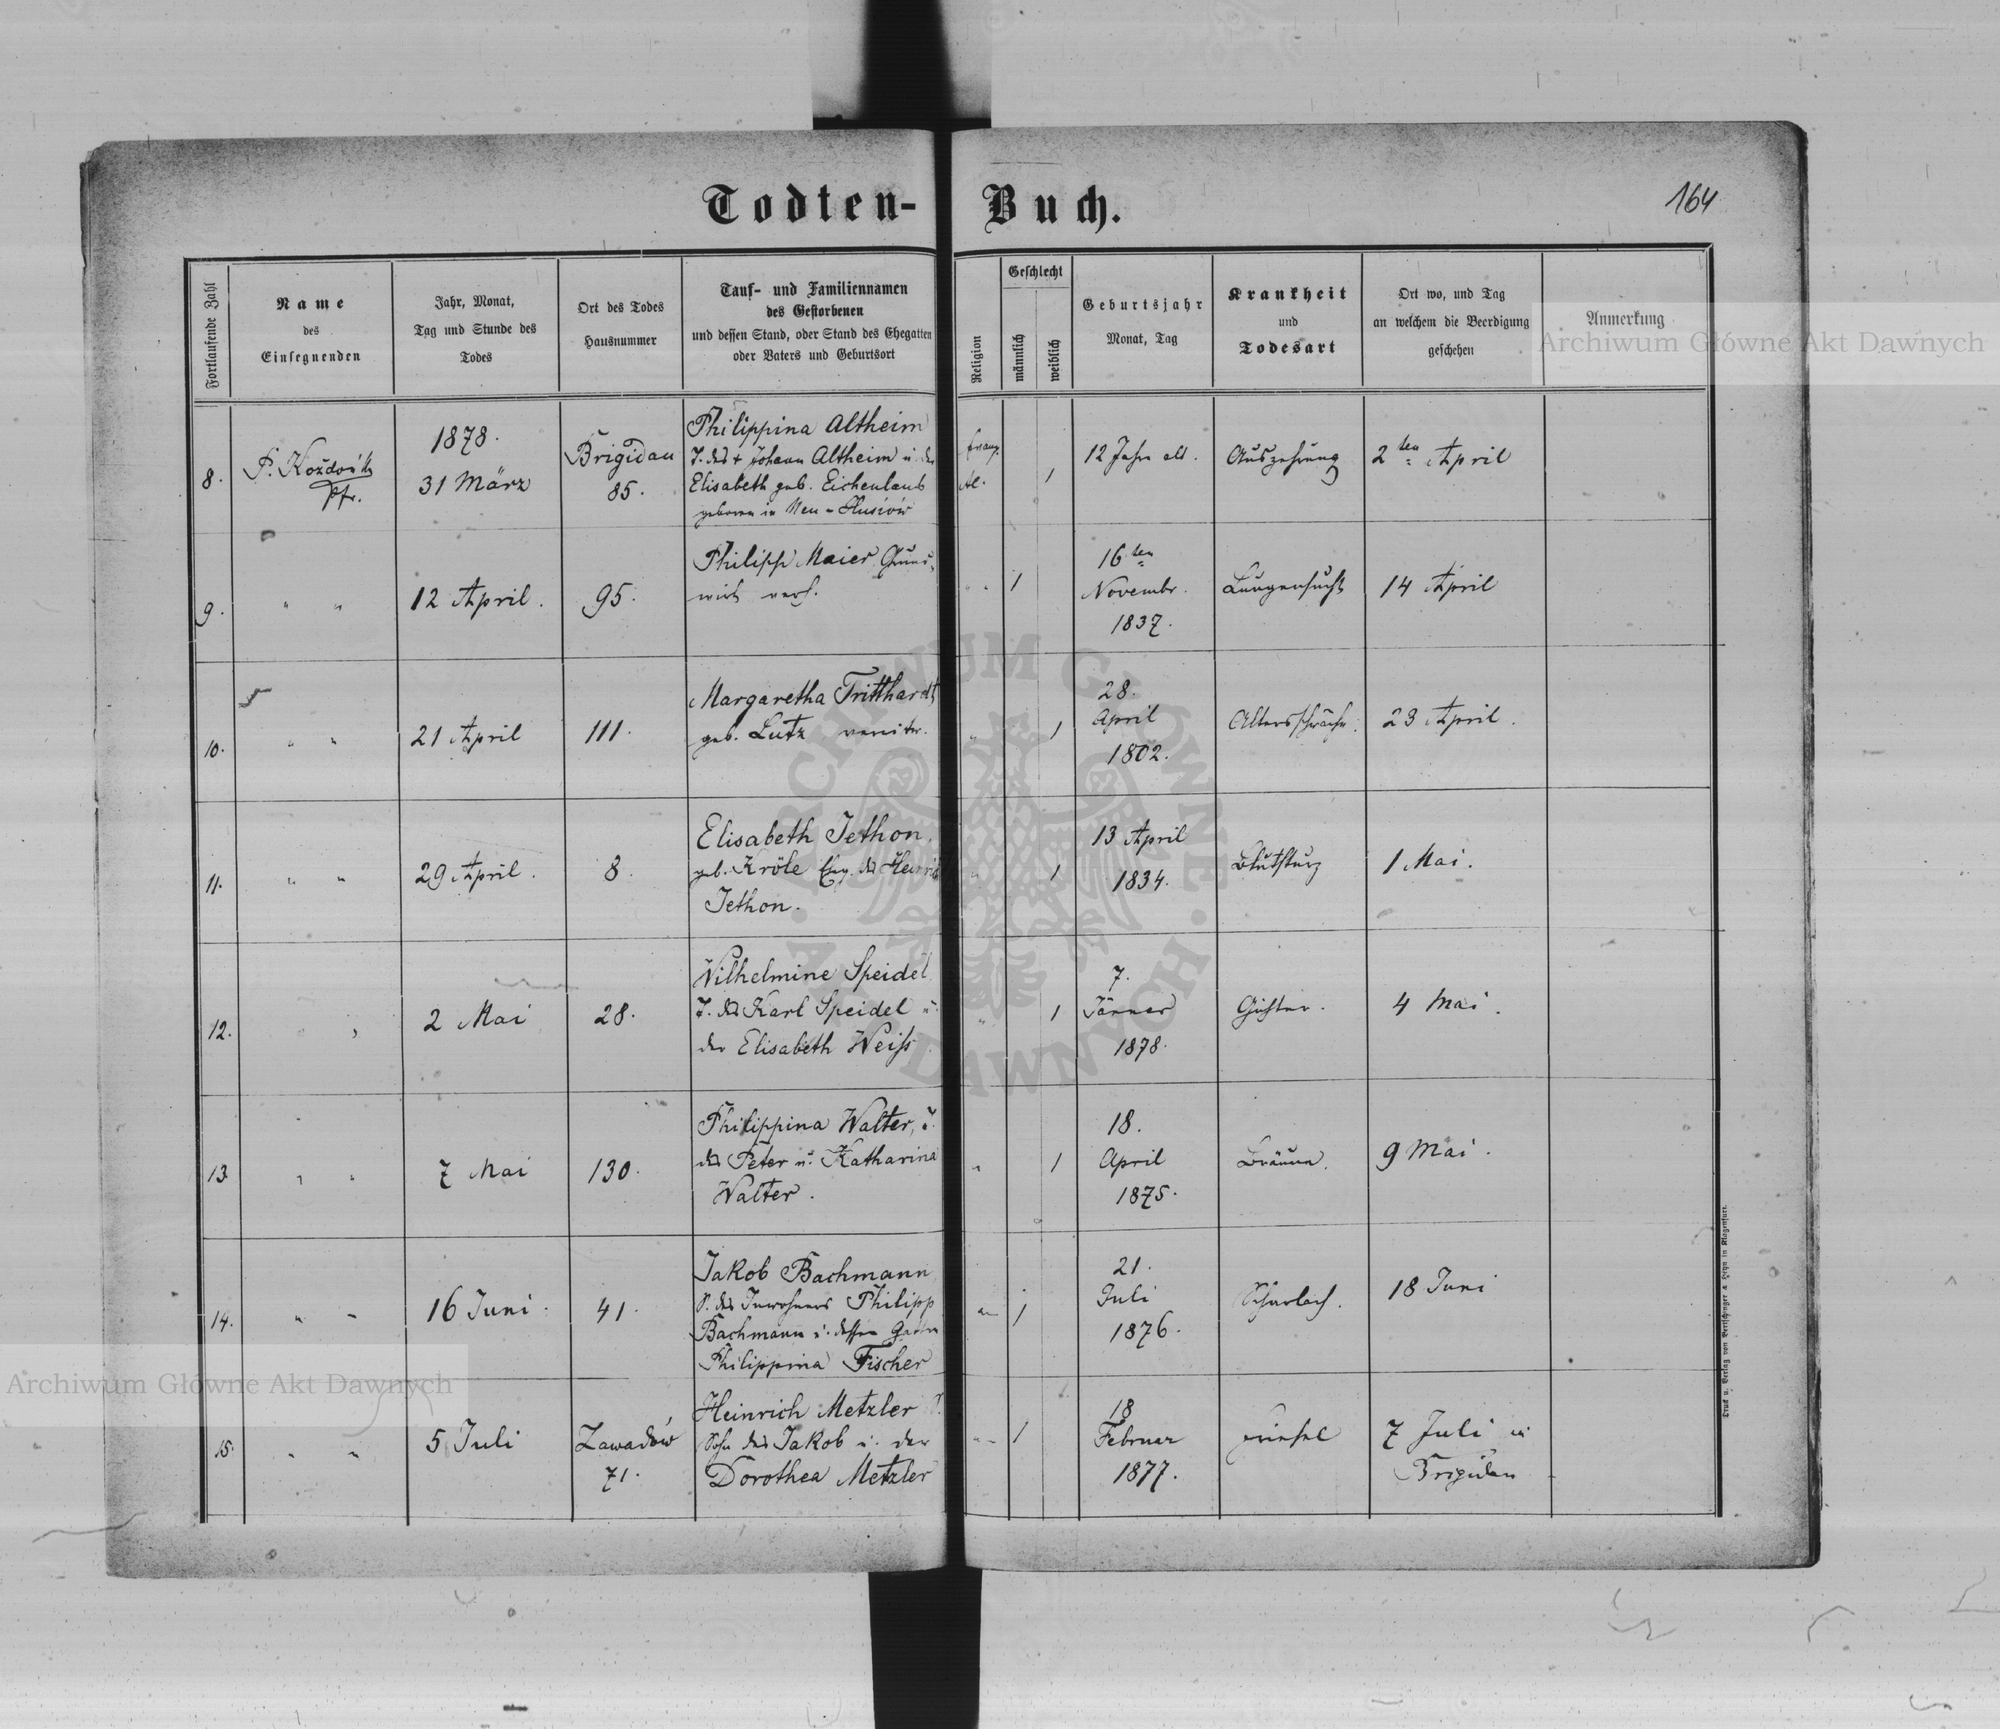 Todten- Buch.
164
Fortlaufende Zahl
Name
des
Einsegnenden
Jahr, Monat,
Tag und Stunde des
Todes
Ort des Todes
Hausnummer
Tauf- und Familiennamen
des Gestorbenen
und dessen Stand, oder Stand des Ehegatten
oder Vaters und Geburtsort
Religion
Geschlecht
männlich
weiblich
Geburtsjahr
Monat, Tag
Krankheit
und
Todesart
Ort wo, und Tag
an welchem die Beerdigung
geschehen
Anmerkung
8.
P.
Pfr.
1878.
31 März
Brigidau
85.
Philippina Altheim
T. des + Johann Altheim u. der
Elisabeth geb. Eichenlaub
geboren in Neu-
1
12 Jahre alt.
Auszehrung
2ten April
9.
" "
12 April.
95.
Philipp Maier Grund-
wirth verh.
" "
1
16ten
Novembr.
1837.
Lungensucht
14 April
10.
" "
21 April
111.
Margaretha Tritthardt
geb. Lutz verwitw.
"
1
28.
April
1802.
Altersschwäche.
23 April.
11.
" "
29 April.
8.
Elisabeth Jethon,
geb. Kröle Eheg. des Heinrich
Jethon.
"
1
13 April
1834.
Blutsturz
1 Mai.
12.
" "
2 Mai
28.
Wilhelmine Speidel
T. des Karl Speidel u.
der Elisabeth Weiss
"
1
7.
Jänner
1878.
Gichter.
4 Mai.
13.
" "
7 Mai
130.
Philippina Walter, T.
des Peter u. Katharina
Walter.
"
1
18.
April
1875.
Bräune.
9 Mai.
14.
" "
16 Juni.
41.
Jakob Bachmann
S. des Inwohners Philipp
Bachmann u. dessen Gattin
Philippina Fischer
"
1
21.
Juli
1876.
Scharlach.
18 Juni
15.
" "
5 Juli
Zawadów
71.
Heinrich Metzler
Sohn des Jakob u. der
Dorothea Metzler
" "
1
18
Februar
1877.
Friesel
7 Juli in
Brigidau
Druck u. Verlag von Bertschinger & Heyn in Klagenfurt.
Archiwum Główne Akt Dawnych
Archiwum Główne Akt Dawnych
ARCHIWUM GŁÓWNE AKT DAWNYCH